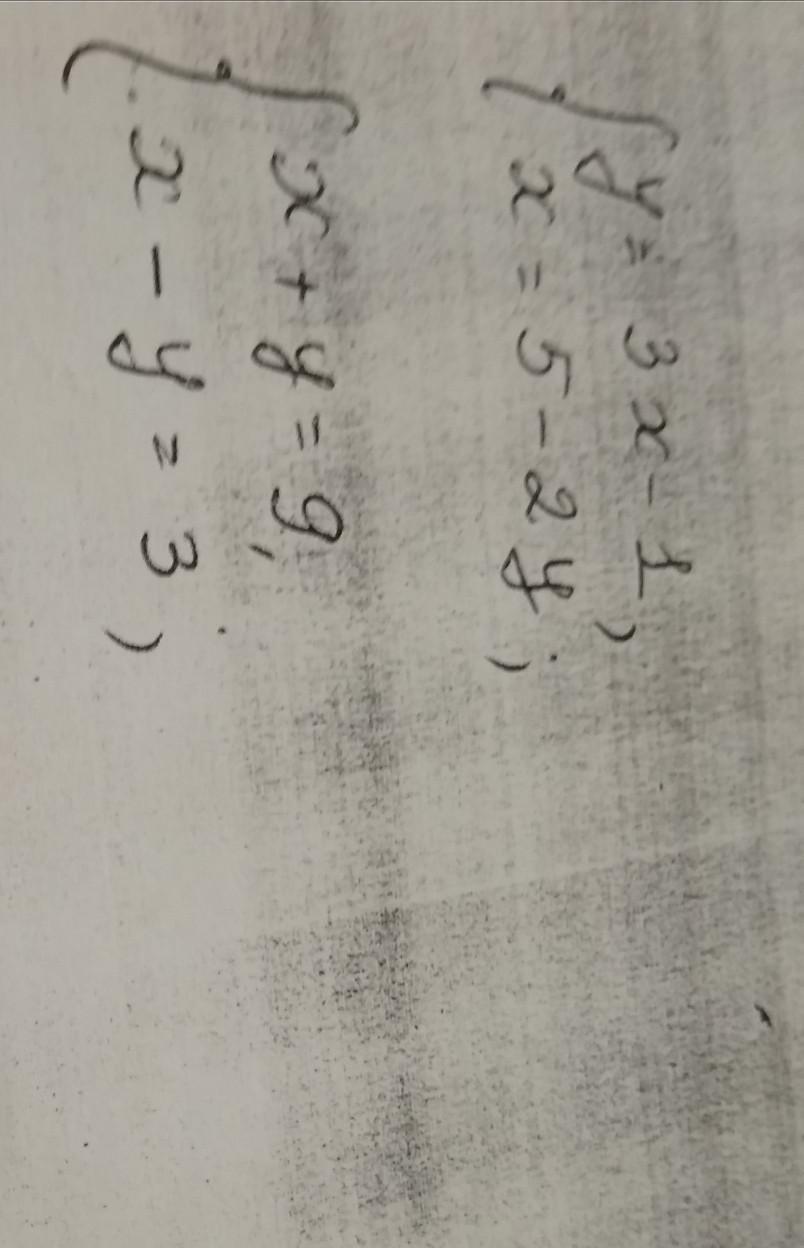 y = 3x - 1,
x = 5 - 2y;
x + y = 9,
x - y = 3;